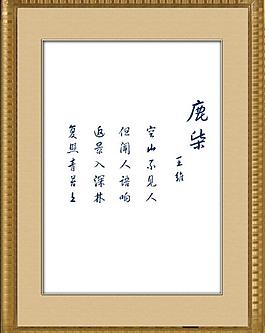 鹿柴
王维
空山不见人
但闻人语响
返景入深林
复照青苔上